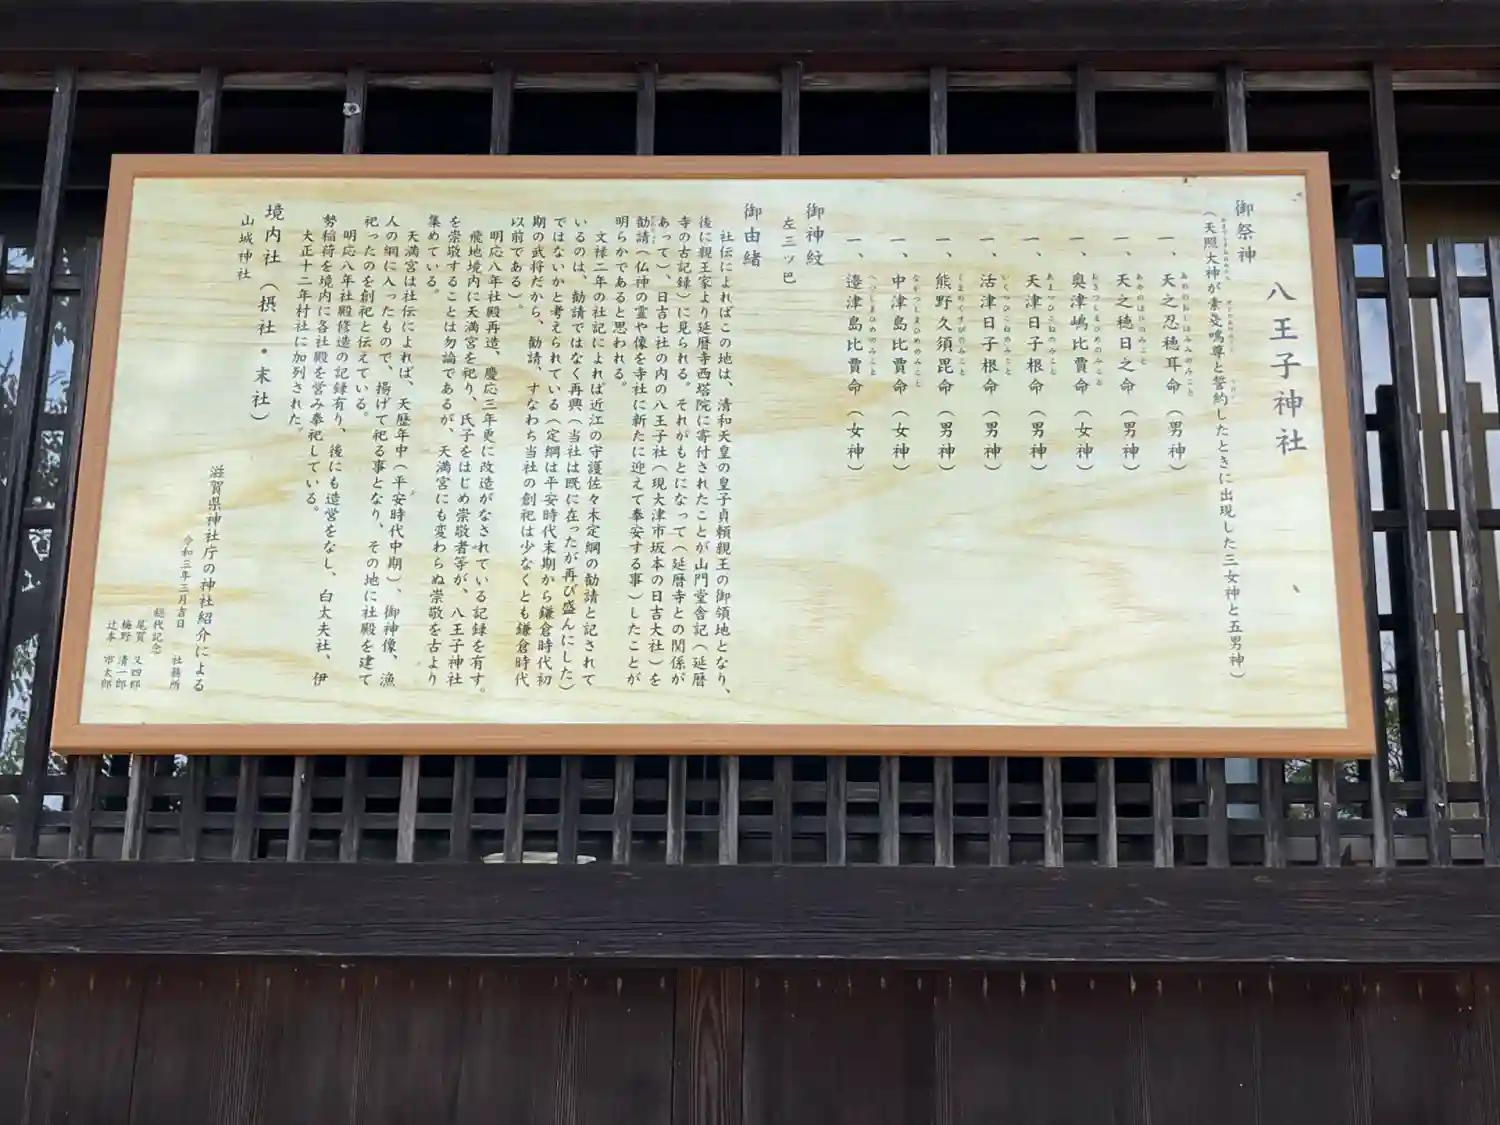 八王子神社
御祭神
(天照大神が素戔嗚尊と誓約したときに出現した三女神と五男神)
一、天之忍穂耳命(男神)
一、天之穂日之命(男神)
一、奥津嶋比賣命(女神)
一、天津日子根命(男神)
一、活津日子根命(男神)
一、熊野久須毘命(男神)
一、中津島比賣命(女神)
一、邉津島比賣命(女神)
御神紋
左三ッ巴
御由緒
社伝によればこの地は、清和天皇の皇子貞頼親王の御領地となり、
後に親王家より延暦寺西塔院に寄付されたことが山門堂舎記(延暦
寺の古記録)に見られる。それがもとになって(延暦寺との関係が
あって)、日吉七社の内の八王子社(現大津市坂本の日吉大社)を
勧請(仏神の霊や像を寺社に新たに迎えて奉安する事)したことが
明らかであると思われる。
文禄二年の社記によれば近江の守護佐々木定綱の勧請と記されて
いるのは、勧請ではなく再興(当社は既に在ったが再び盛んにした)
ではないかと考えられている(定綱は平安時代末期から鎌倉時代初
期の武将だから、勧請、すなわち当社の創祀は少なくとも鎌倉時代
以前である)。
明応八年社殿再造、慶応三年更に改造がなされている記録を有す。
飛地境内に天満宮を祀り、氏子をはじめ崇敬者等が、八王子神社
を崇敬することは勿論であるが、天満宮にも変わらぬ崇敬を古より
集めている。
天満宮は社伝によれば、天歴年中(平安時代中期)、御神像、漁
人の網に入ったもので、揚げて祀る事となり、その地に社殿を建て
祀ったのを創祀と伝えている。
明応八年社殿修造の記録有り、後にも造営をなし、白太夫社、伊
勢稲荷を境内に各社殿を営み奉祀している。
大正十二年村社に加列された。
境内社(摂社・末社)
山城神社
滋賀県神社庁の神社紹介による
令和三年三月吉日 社務所
総代記念
尾賀 又四郎
梅野 清一郎
辻本 市太郎